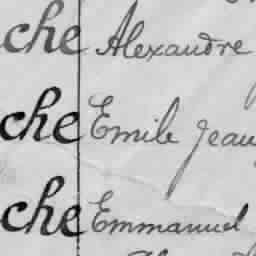 che Alexandre
che Emile Jean
che Emmanuel